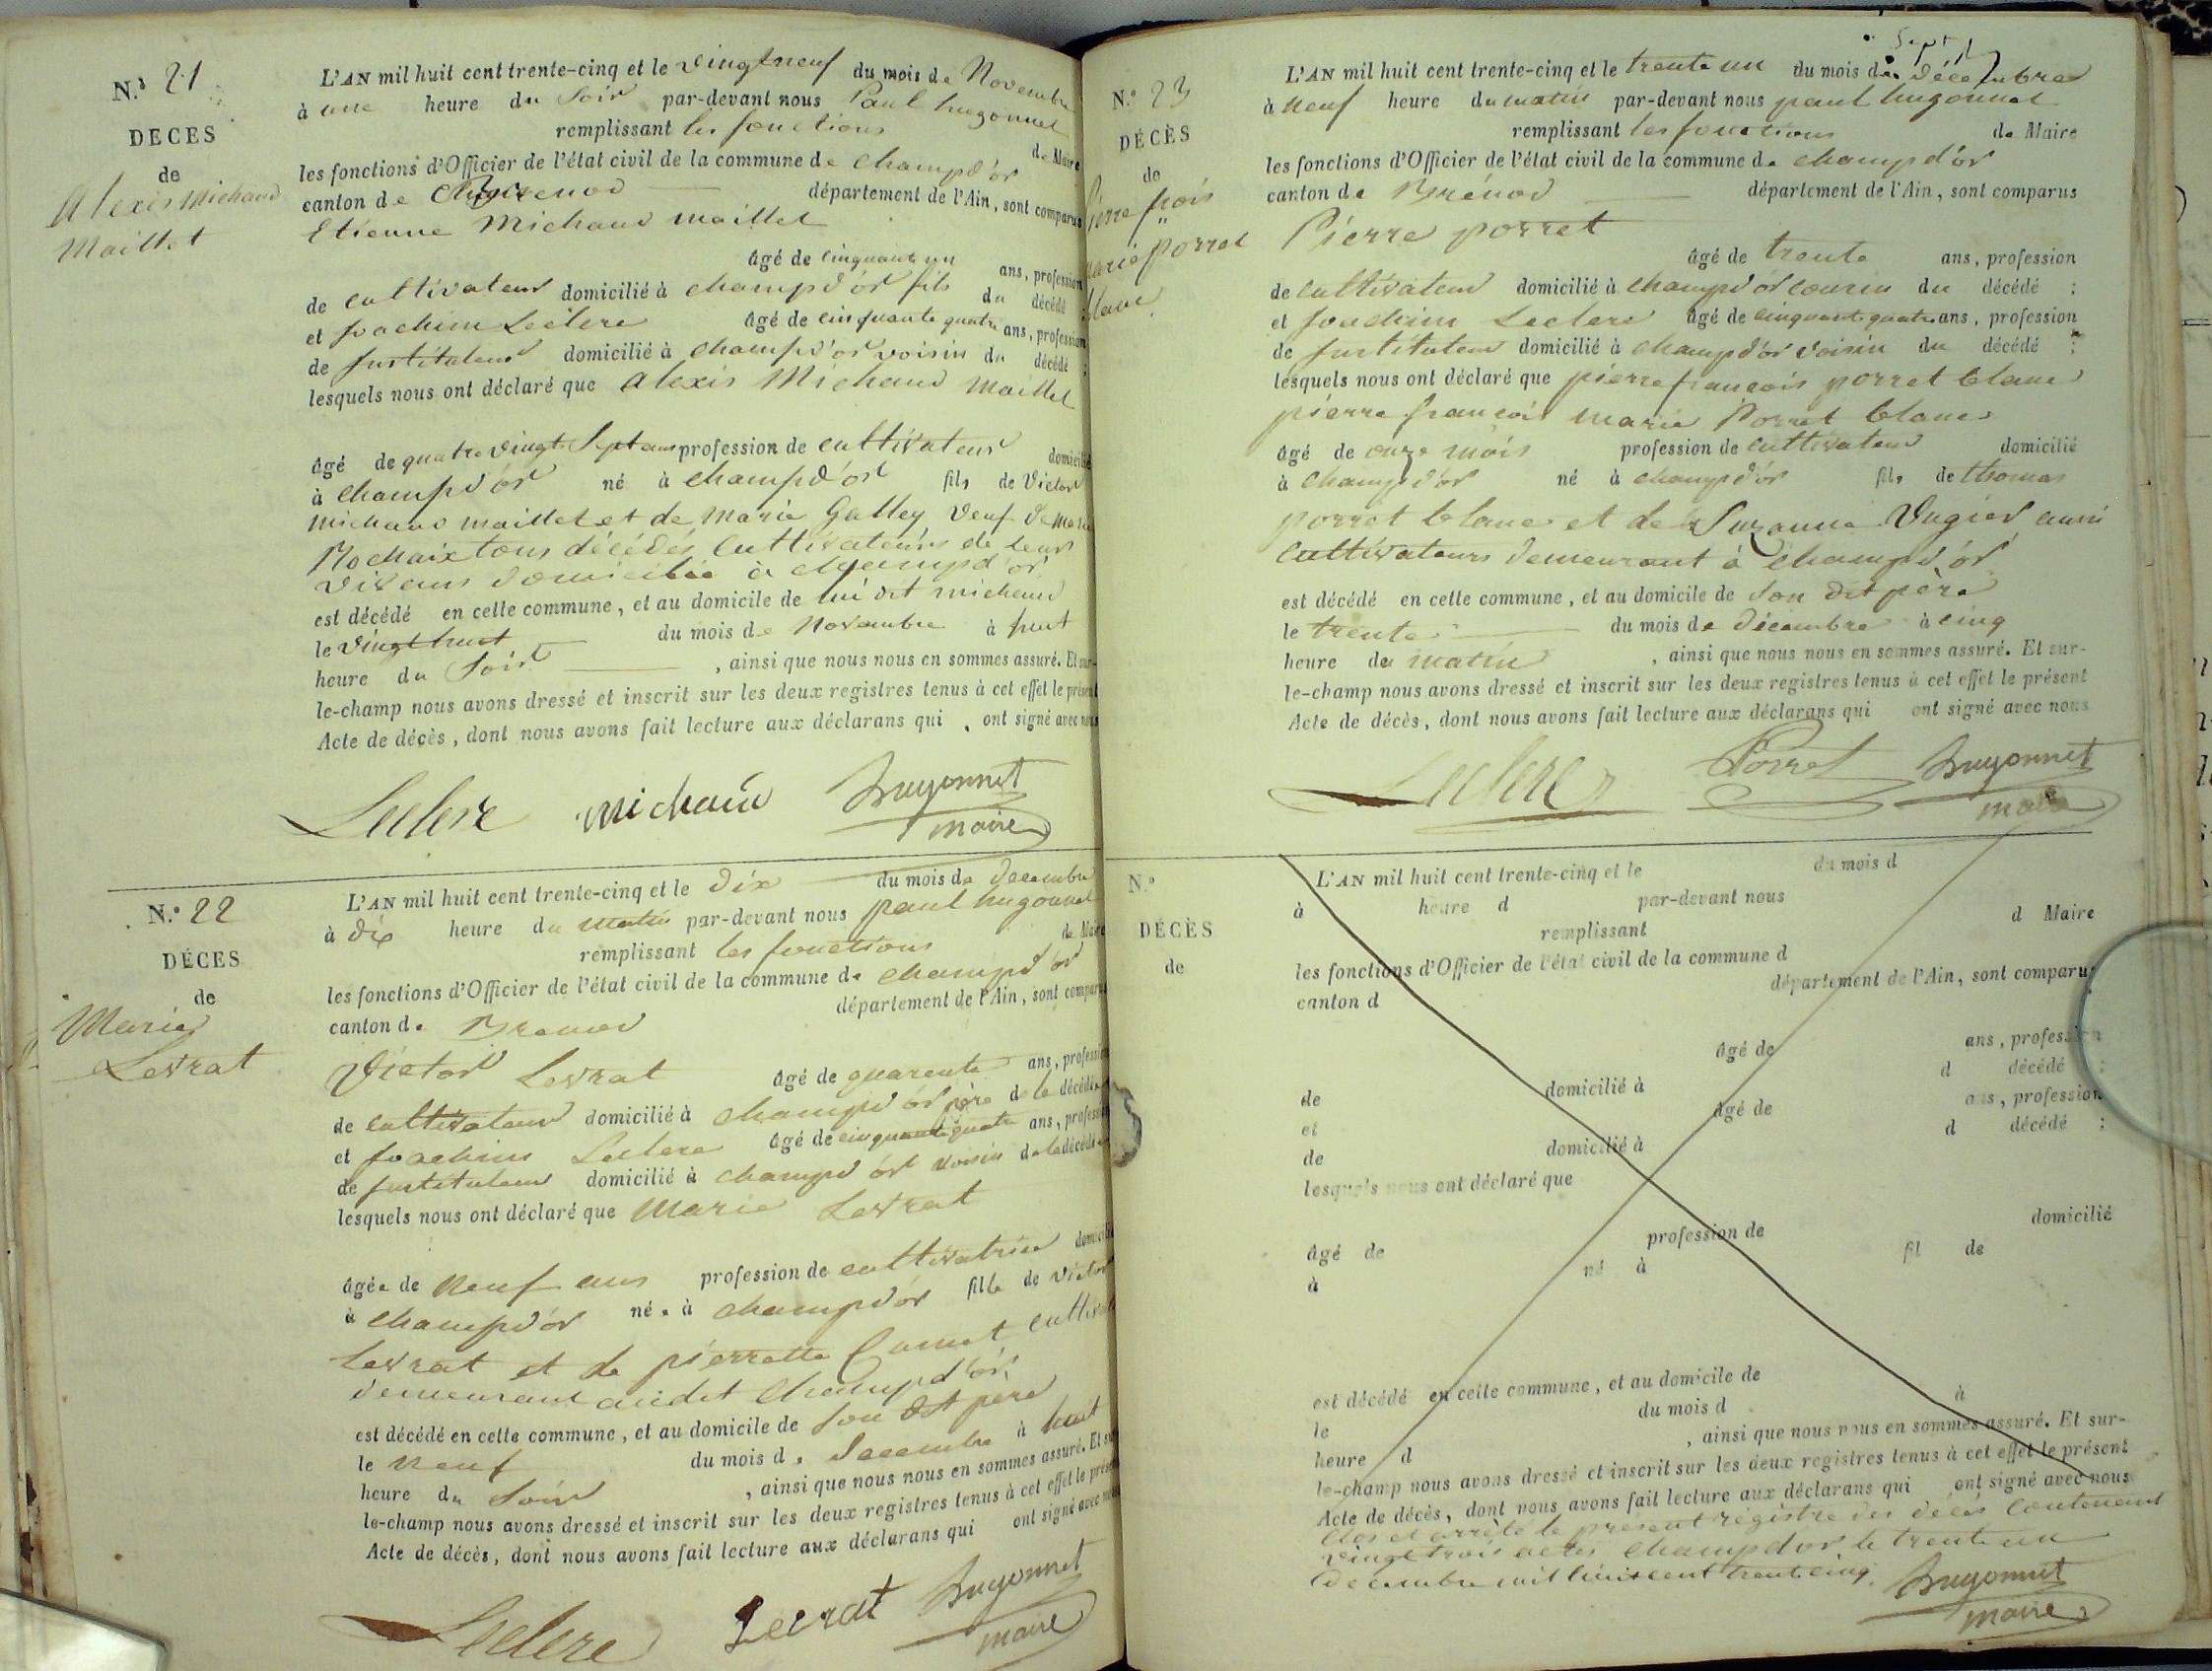 N.º 21
DECES
de
Alexis Michaud
Maillet
L'AN mil huit cent trente-cinq et le vingt neuf du mois de Novembre
à une heure du Soir par-devant nous Paul hugonnet
remplissant les fonctions de Maire
les fonctions d'Officier de l'état civil de la commune de champd'or
canton de Brenod département de l'Ain, sont comparus
Etienne Michaud maillet
âgé de cinquante un ans, profession
de cultivateur domicilié à champd'or fils du décédé
et joachim Leclere âgé de cinquante quatre ans, profession
de Instituteur domicilié à champd'or voisin du décédé ;
lesquels nous ont déclaré que alexis Michaud maillet
âgé de quatre vingt Sept ans profession de cultivateur domicilié
à champd'or né à champd'or fils de Victor
michaud maillet et de marie Galley veuf de marie
Rochaix tous décédés cultivateurs de leur
vivans domicilié à champd'or
est décédé en cette commune, et au domicile de lui dit michaud
le vingt huit du mois de Novembre à huit
heure du Soir , ainsi que nous nous en sommes assuré. Et sur-
le-champ nous avons dressé et inscrit sur les deux registres tenus à cet effet le présent
Acte de décès, dont nous avons fait lecture aux déclarans qui ont signé avec nous
Leclere michaud hugonnet
maire
N.º 22
DÉCES
de
Marie
Levrat
L'AN mil huit cent trente-cinq et le dix du mois de decembre
à dix heure du matin par-devant nous paul hugonnet
remplissant les fonctions de Maire
les fonctions d'Officier de l'état civil de la commune de champd'or
canton de Brenod département de l'Ain, sont comparus
Victor Levrat âgé de quarente ans, profession
de cultivateur domicilié à champd'or père de la décédée
et joachim Leclere âgé de cinquante quatre ans, profession
de Instituteur domicilié à champd'or voisin de la décédée
lesquels nous ont déclaré que Marie Levrat
âgée de neuf ans profession de cultivatrice domicilié
à champd'or née à champd'or fille de victor
Levrat et de pierrette
demeurant audit Champd'or
est décédé en cette commune, et au domicile de son dit père
le neuf du mois de decembre à huit
heure du Soir , ainsi que nous nous en sommes assuré. Et sur
le-champ nous avons dressé et inscrit sur les deux registres tenus à cet effet le présent
Acte de décès, dont nous avons fait lecture aux déclarans qui ont signé avec nous
Leclere Levrat hugonnet
maire
N.º 23
DÉCÈS
de
Pierre frois
marie porret
blanc
L'AN mil huit cent trente-cinq et le trente un du mois de décembre
à neuf heure du matin par-devant nous paul hugonnet
remplissant les fonctions de Maire
les fonctions d'Officier de l'état civil de la commune de champd'or
canton de Brénod département de l'Ain, sont comparus
Pierre porret
âgé de trente ans, profession
de cultivateur domicilié à champd'or cousin du décédé ;
et joachim Leclere âgé de cinquante quatre ans, profession
de Instituteur domicilié à champd'or voisin du décédé ;
lesquels nous ont déclaré que pierre françois porret blanc
pierre françois marie Porret blanc
âgé de onze mois profession de cultivateur domicilié
à champd'or né à champd'or fils de thomas
porret blanc et de Suzanne Vugier aussi
cultivateurs demeurant à champd'or
est décédé en cette commune, et au domicile de son dit père
le trente du mois de décembre à cinq
heure du matin , ainsi que nous nous en sommes assuré. Et sur-
le-champ nous avons dressé et inscrit sur les deux registres tenus à cet effet le présent
Acte de décès, dont nous avons fait lecture aux déclarans qui ont signé avec nous
Leclere Porret hugonnet
maire
N.º
DÉCÈS
de
L'AN mil huit cent trente-cinq et le du mois d
à heure d par-devant nous
remplissant d Maire
les fonctions d'Officier de l'état civil de la commune d
canton d département de l'Ain, sont comparus
âgé de ans, profession
de domicilié à d décédé ;
et âgé de ans, profession
de domicilié à d décédé ;
lesquels nous ont déclaré que
âgé de profession de domicilié
à né à fil de
est décédé en cette commune, et au domicile de
le du mois d à
heure d , ainsi que nous nous en sommes assuré. Et sur-
le-champ nous avons dressé et inscrit sur les deux registres tenus à cet effet le présent
Acte de décès, dont nous avons fait lecture aux déclarans qui ont signé avec nous
Clos et arrêté le présent régistre des décès contenant
vingt trois actes champd'or le trente un
decembre mil huit cent trente cinq.
hugonnet
maire